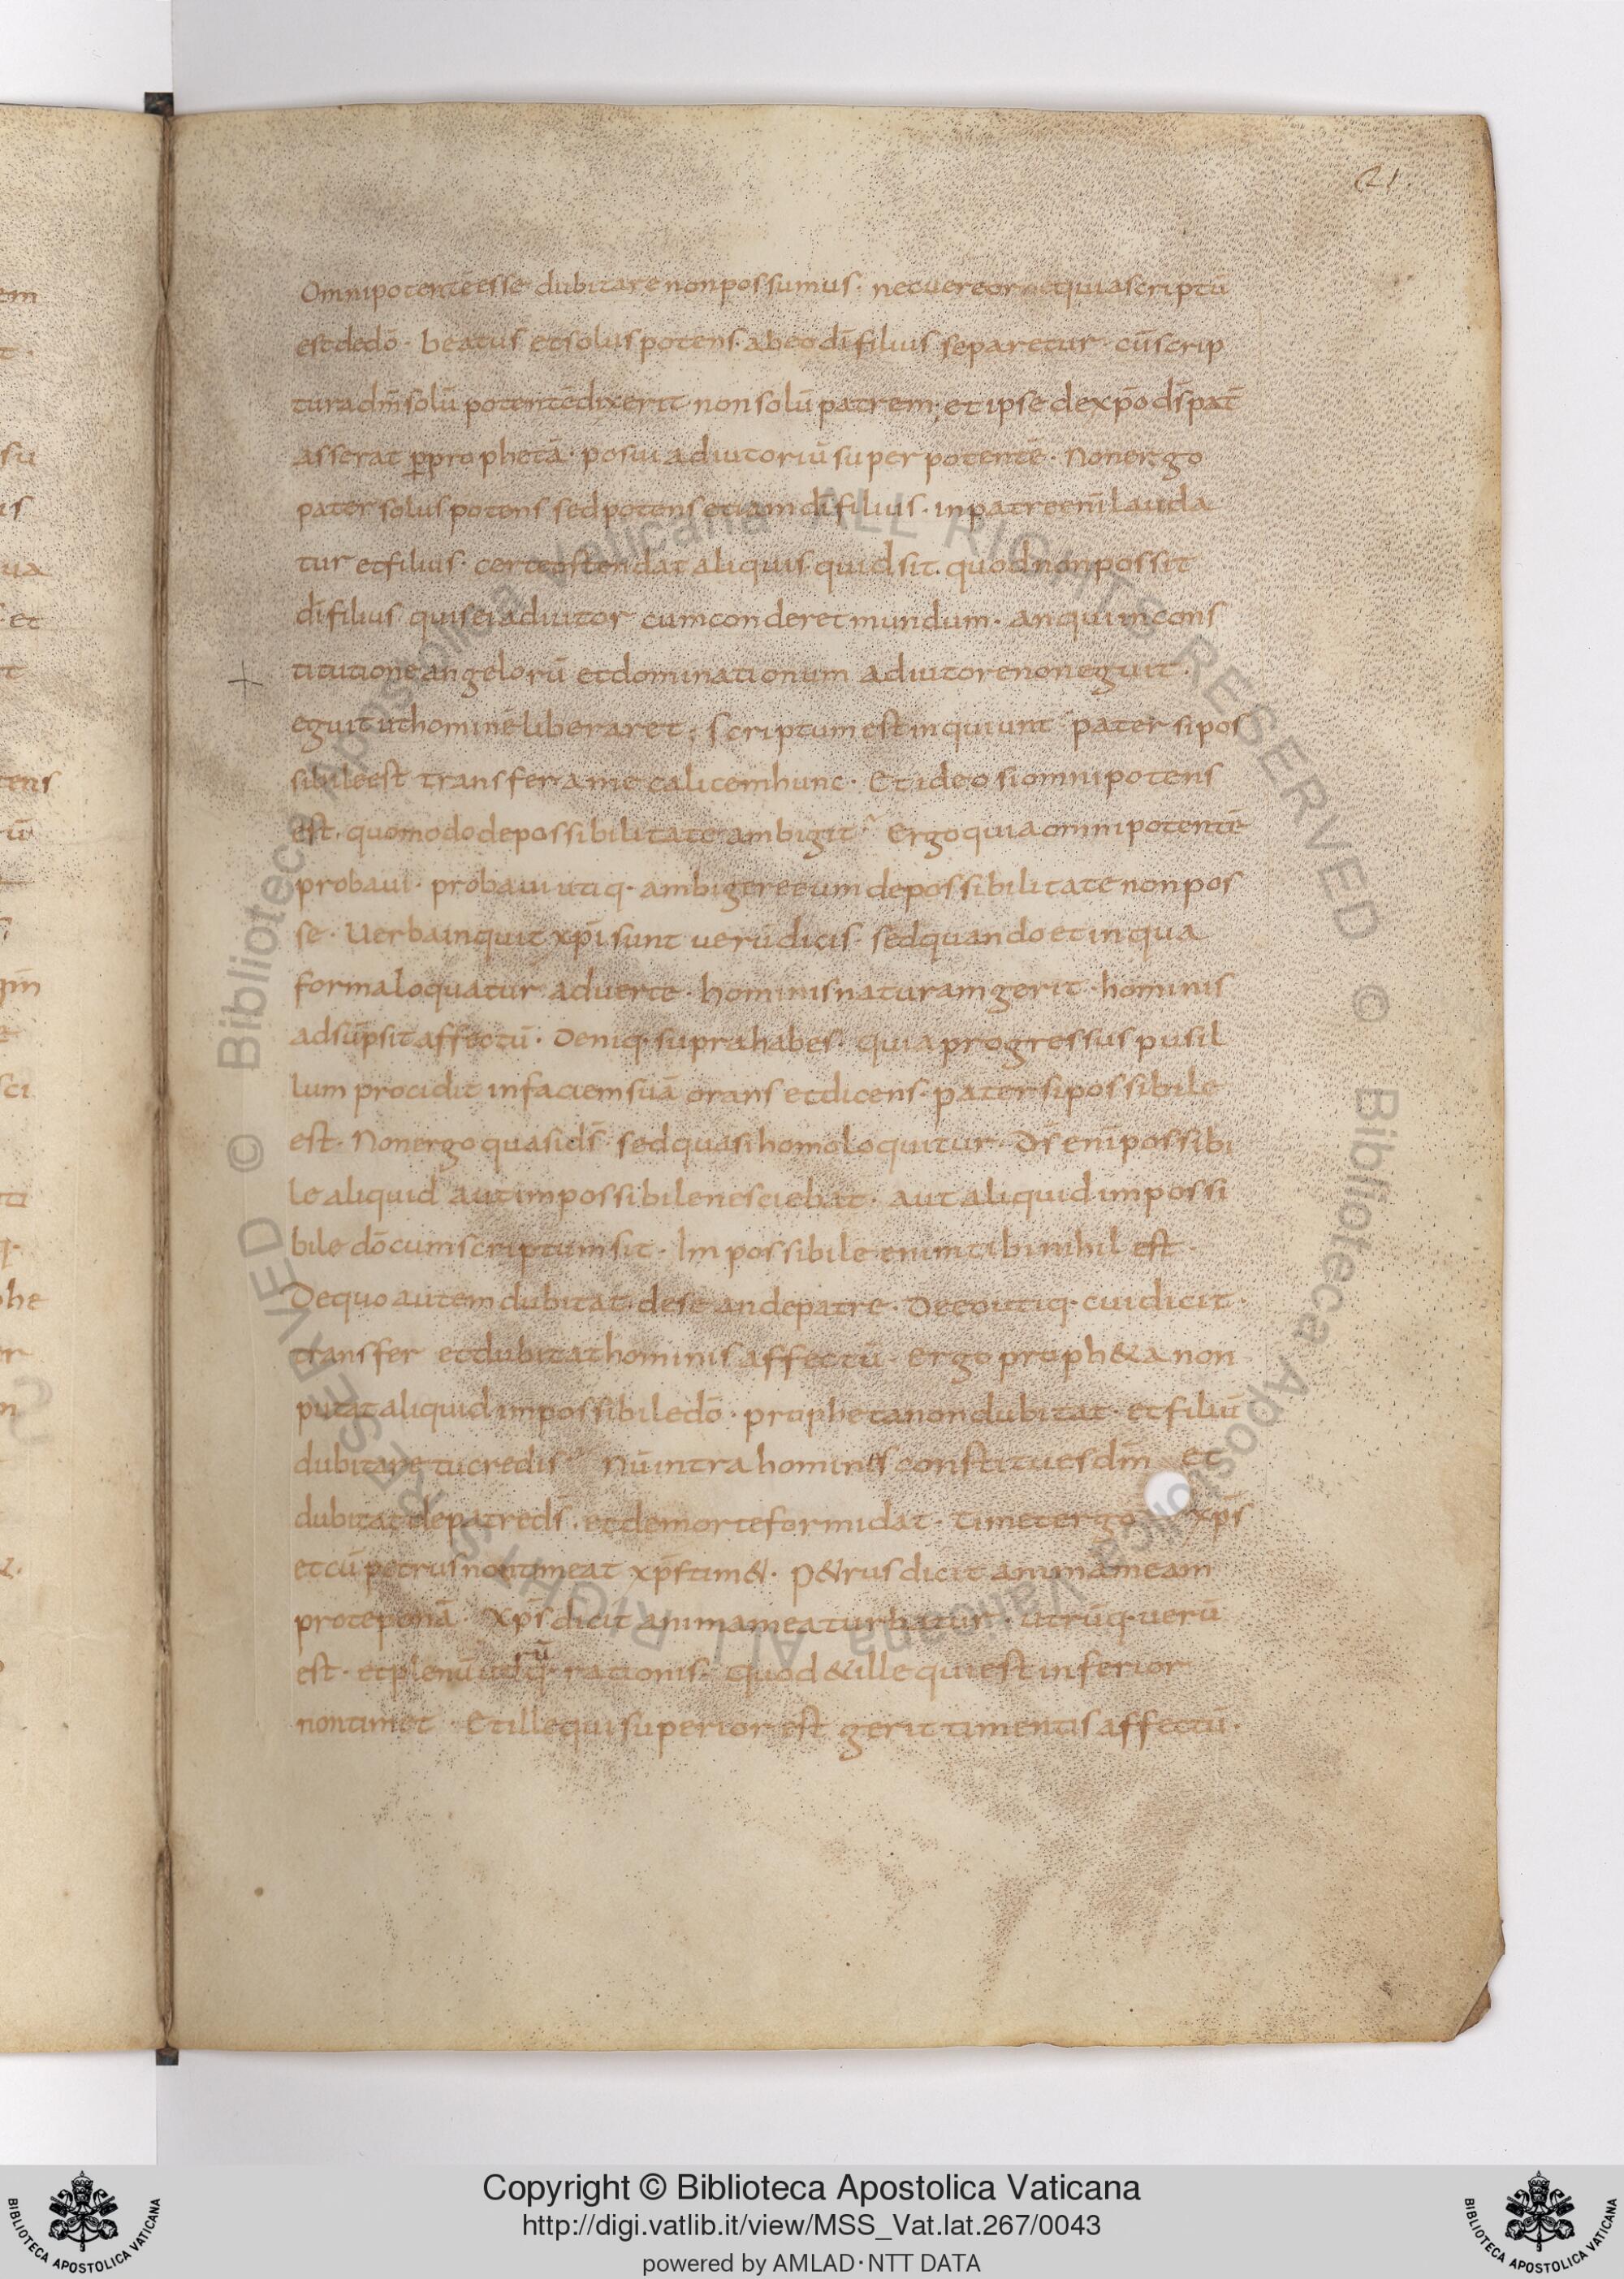 21
Omnipotentē esse dubitare non possumus · nec uereor ne quia scriptū
est de dō · beatus et solus potens · ab eo dī filius separetur · cū scrip
tura dm̄ solū potentē dixerit · non solū patrem ; et ipse de xp̄o ds̄ pat̄
asserat ꝑ prophetā · posui adiutoriū super potentē · Non ergo
pater solus potens sed potens etiam dī filius · in patre eni̅ lauda
tur et filius · certe ostendat aliquis quid sit · quod non possit
dī filius quis ei adiutor cum conderet mundum · an qui in cons
titutione angelorū et dominationum adiutore non eguit ·
eguit ut hominē liberaret ; Scriptum est inquiunt pater si pos
sibile est transfer a me calicem hunc · Et ideo si omnipotens
est · quomodo de possibilitate ambigit? Ergo quia omnipotentē
probaui · probaui utiq· ambigere eum de possibilitate non pos
se · Uerba inquit xp̄i sunt uerū dicis · sed quando et in qua
forma loquatur aduerte · hominis naturam gerit · hominis
adsūpsit affectū · Deniq· supra habes · quia progressus pusil
lum procidit in faciem suā orans et dicens · pater si possibile
est · Non ergo quasi ds̄ sed quasi homo loquitur · Ds̄ eni̅ possibi
le aliquid aut impossibile nesciebat · aut aliquid impossi
bile dō cum scriptum sit · Impossibile enim tibi nihil est ·
De quo autem dubitat · de se an de patre · De eo utiq· cui dicit ·
transfer et dubitat hominis affectū · ergo proph&a non
putat aliquid impossibile dō · propheta non dubitat · et filiū
dubitare tu credis? Nū intra homines constitues dm̄ et
dubitat de patre ds̄ · et de morte formidat · timet ergo xp̄s
et cū petrus non timeat xp̄s tim& · P&rus dicit animā meam
pro te ponā · Xp̄s dicit anima mea turbatur · utrūq· uerū
est · et plenū utrūq· rationis · quod & ille qui est inferior
non timet · Et ille qui superior est gerit timentis affectū ·
Copyright © Biblioteca Apostolica Vaticana
http://digi.vatlib.it/view/MSS_Vat.lat.267/0043
powered by AMLAD·NTT DATA